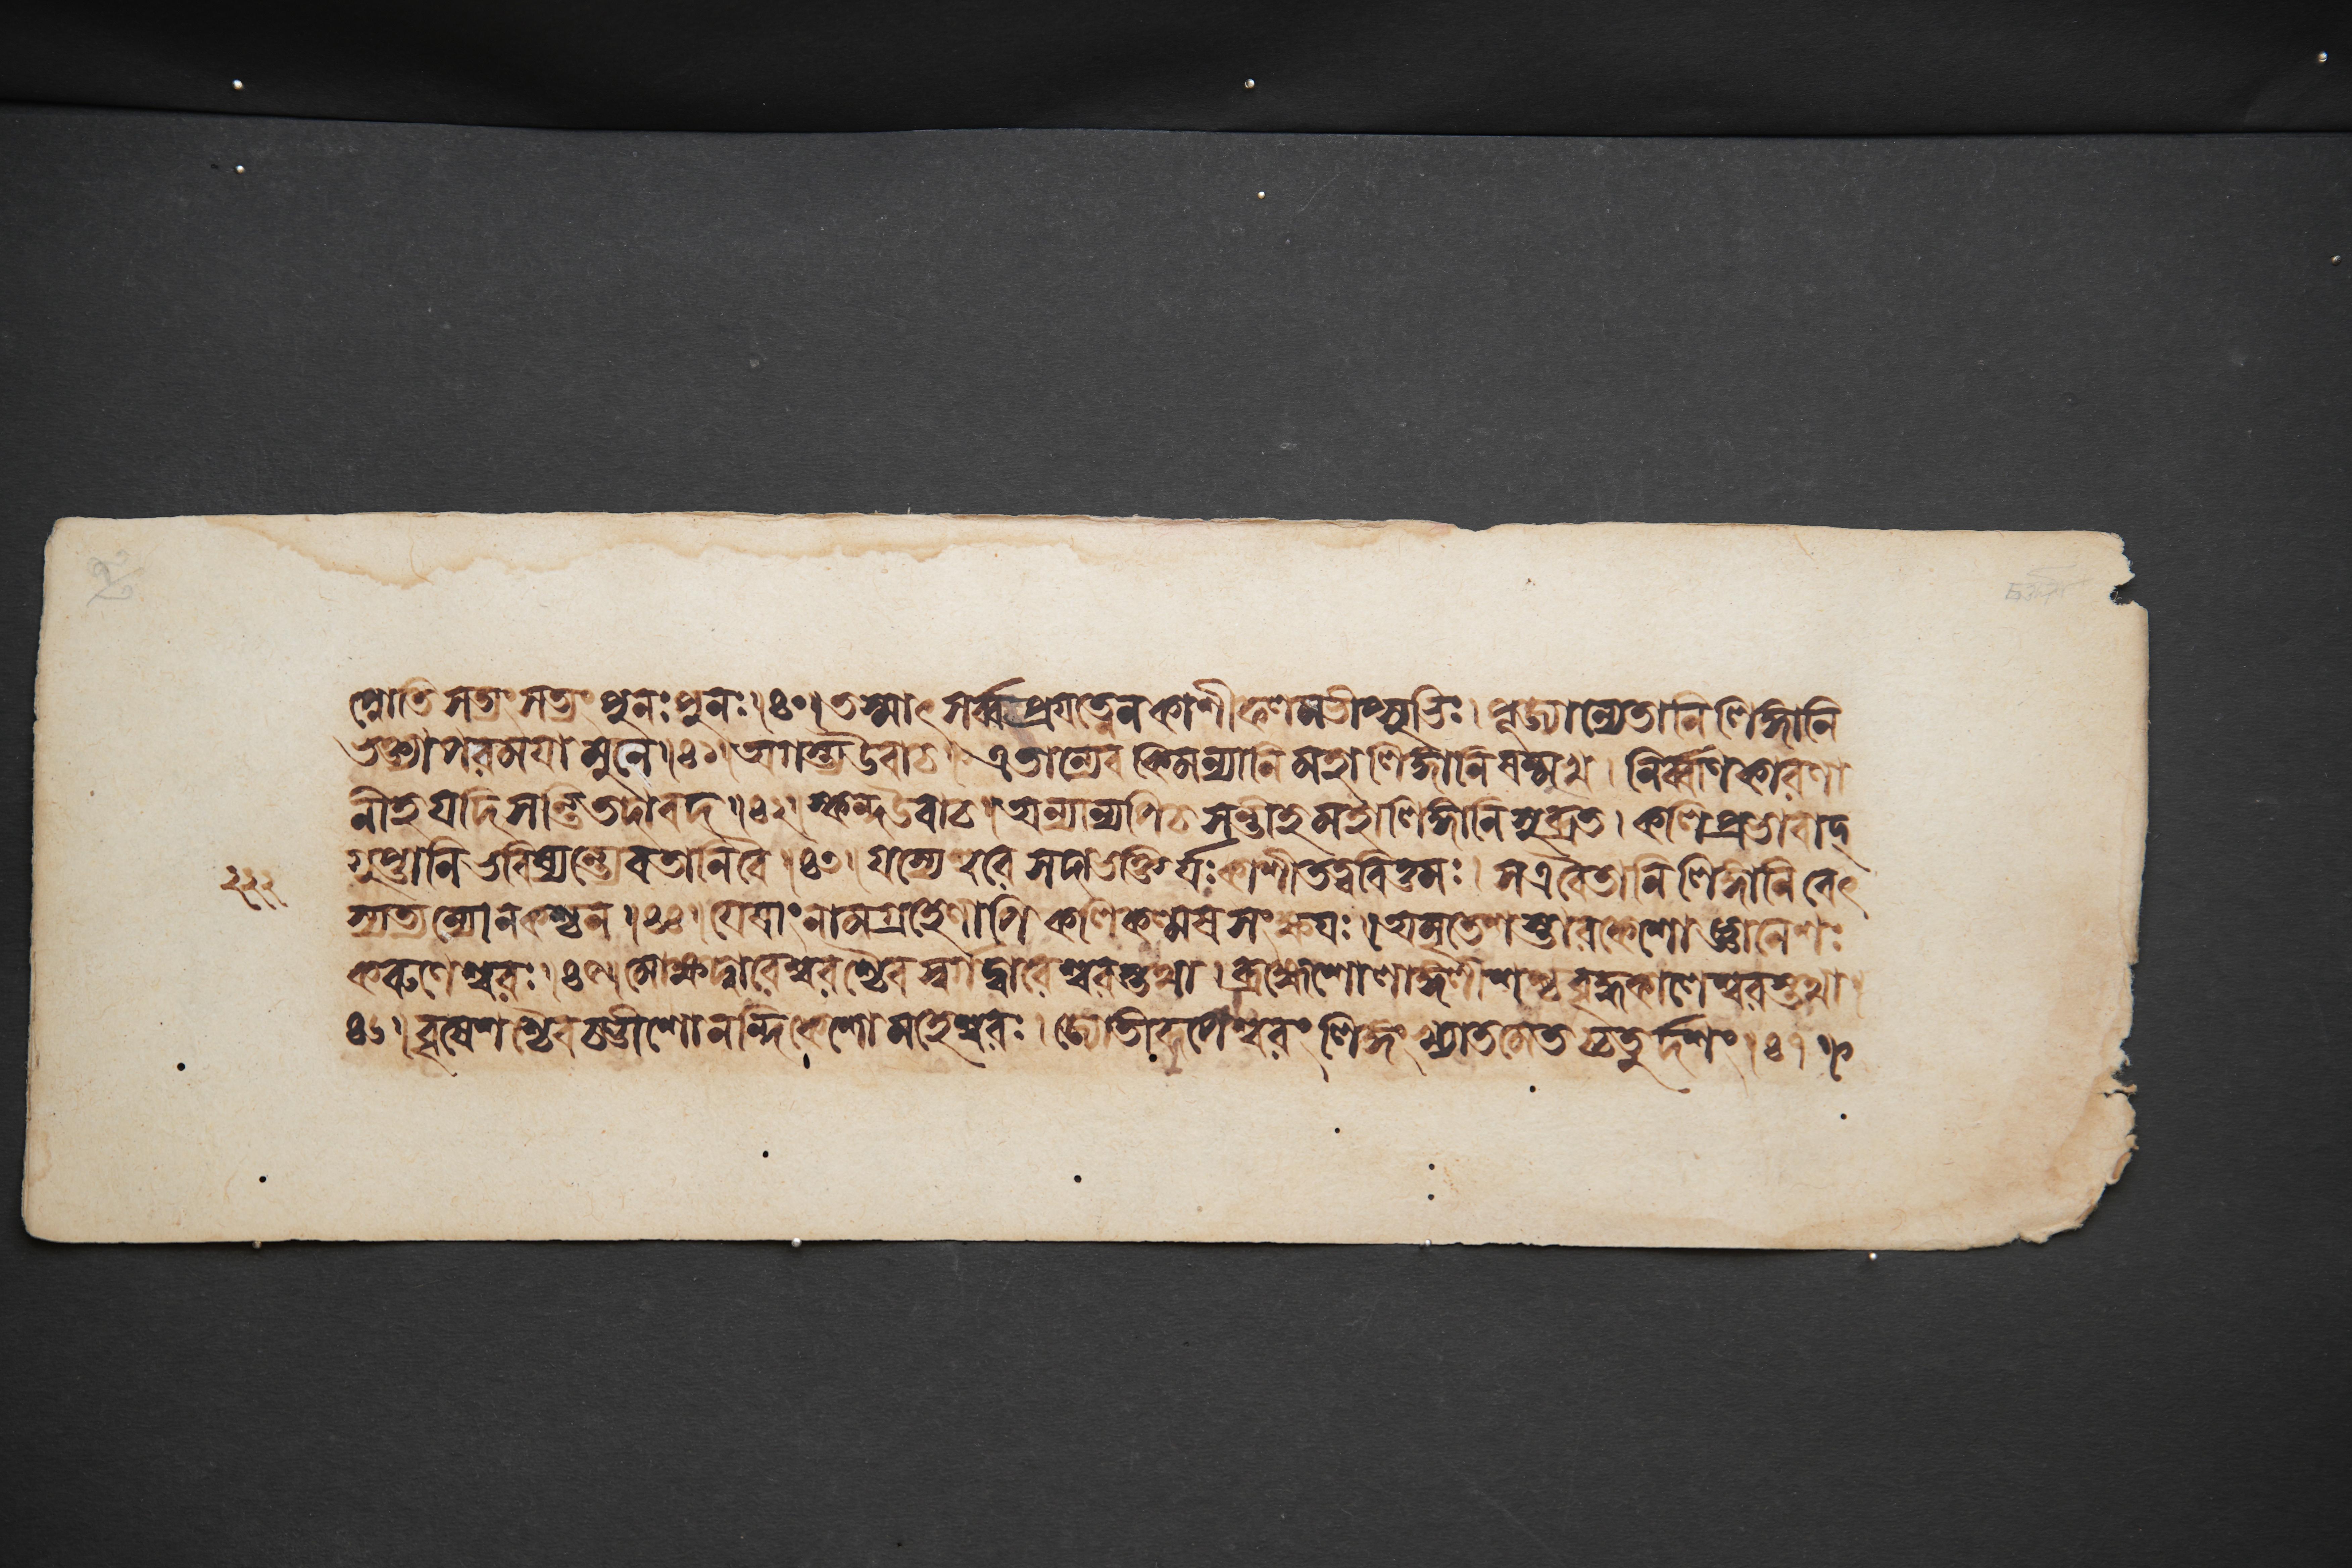 প্নোতি সত্যং সত্যং পুনঃপুনঃ।৪০। তস্মাৎ সর্ব্বপ্রযত্নেন কাশীফলমভীপ্সুভিঃ। পূজ্যান্যেতানি লিঙ্গানি
ভক্ত্যা পরময়া মুনে।৪১। অগস্ত্য উবাচ। এতান্যেব কিমন্যানি মহালিঙ্গানি ষন্মুখ। নির্ব্বাণকারণা
নীহ যদি সন্তি তদা বদ।৪২। স্কন্দ উবাচ। অন্যান্যপি চ সন্তীহ মহালিঙ্গানি সুব্রত। কলিপ্রভাবাদ্
গুপ্তানি ভবিষ্যন্ত্যেব তানি বৈ।৪৩। যস্যেশ্বরে সদা ভক্তির্যঃ কাশীতত্ত্ববিত্তমঃ। স এবৈতানি লিঙ্গানি বেৎ
স্যত্যন্যো ন কশ্চন।৪৪। যেষাং নামগ্রহেণাপি কলিকল্মষসংক্ষয়ঃ। অমৃতেশস্তারকেশো জ্ঞানেশঃ
করুণেশ্বরঃ।৪৫। মোক্ষদ্বারেশ্বরশ্চৈব স্বর্গদ্বারেশ্বরস্তথা। ব্রহ্মেশো লাঙ্গলীশশ্চ বৃদ্ধকালেশ্বরস্তথা।
৪৬। বৃষেশশ্চৈব চণ্ডীশো নন্দিকেশো মহেশ্বরঃ। জ্যোতীরূপেশ্বরং লিঙ্গং খ্যাতমেতচ্চতুর্দশং।৪৭।
২২২